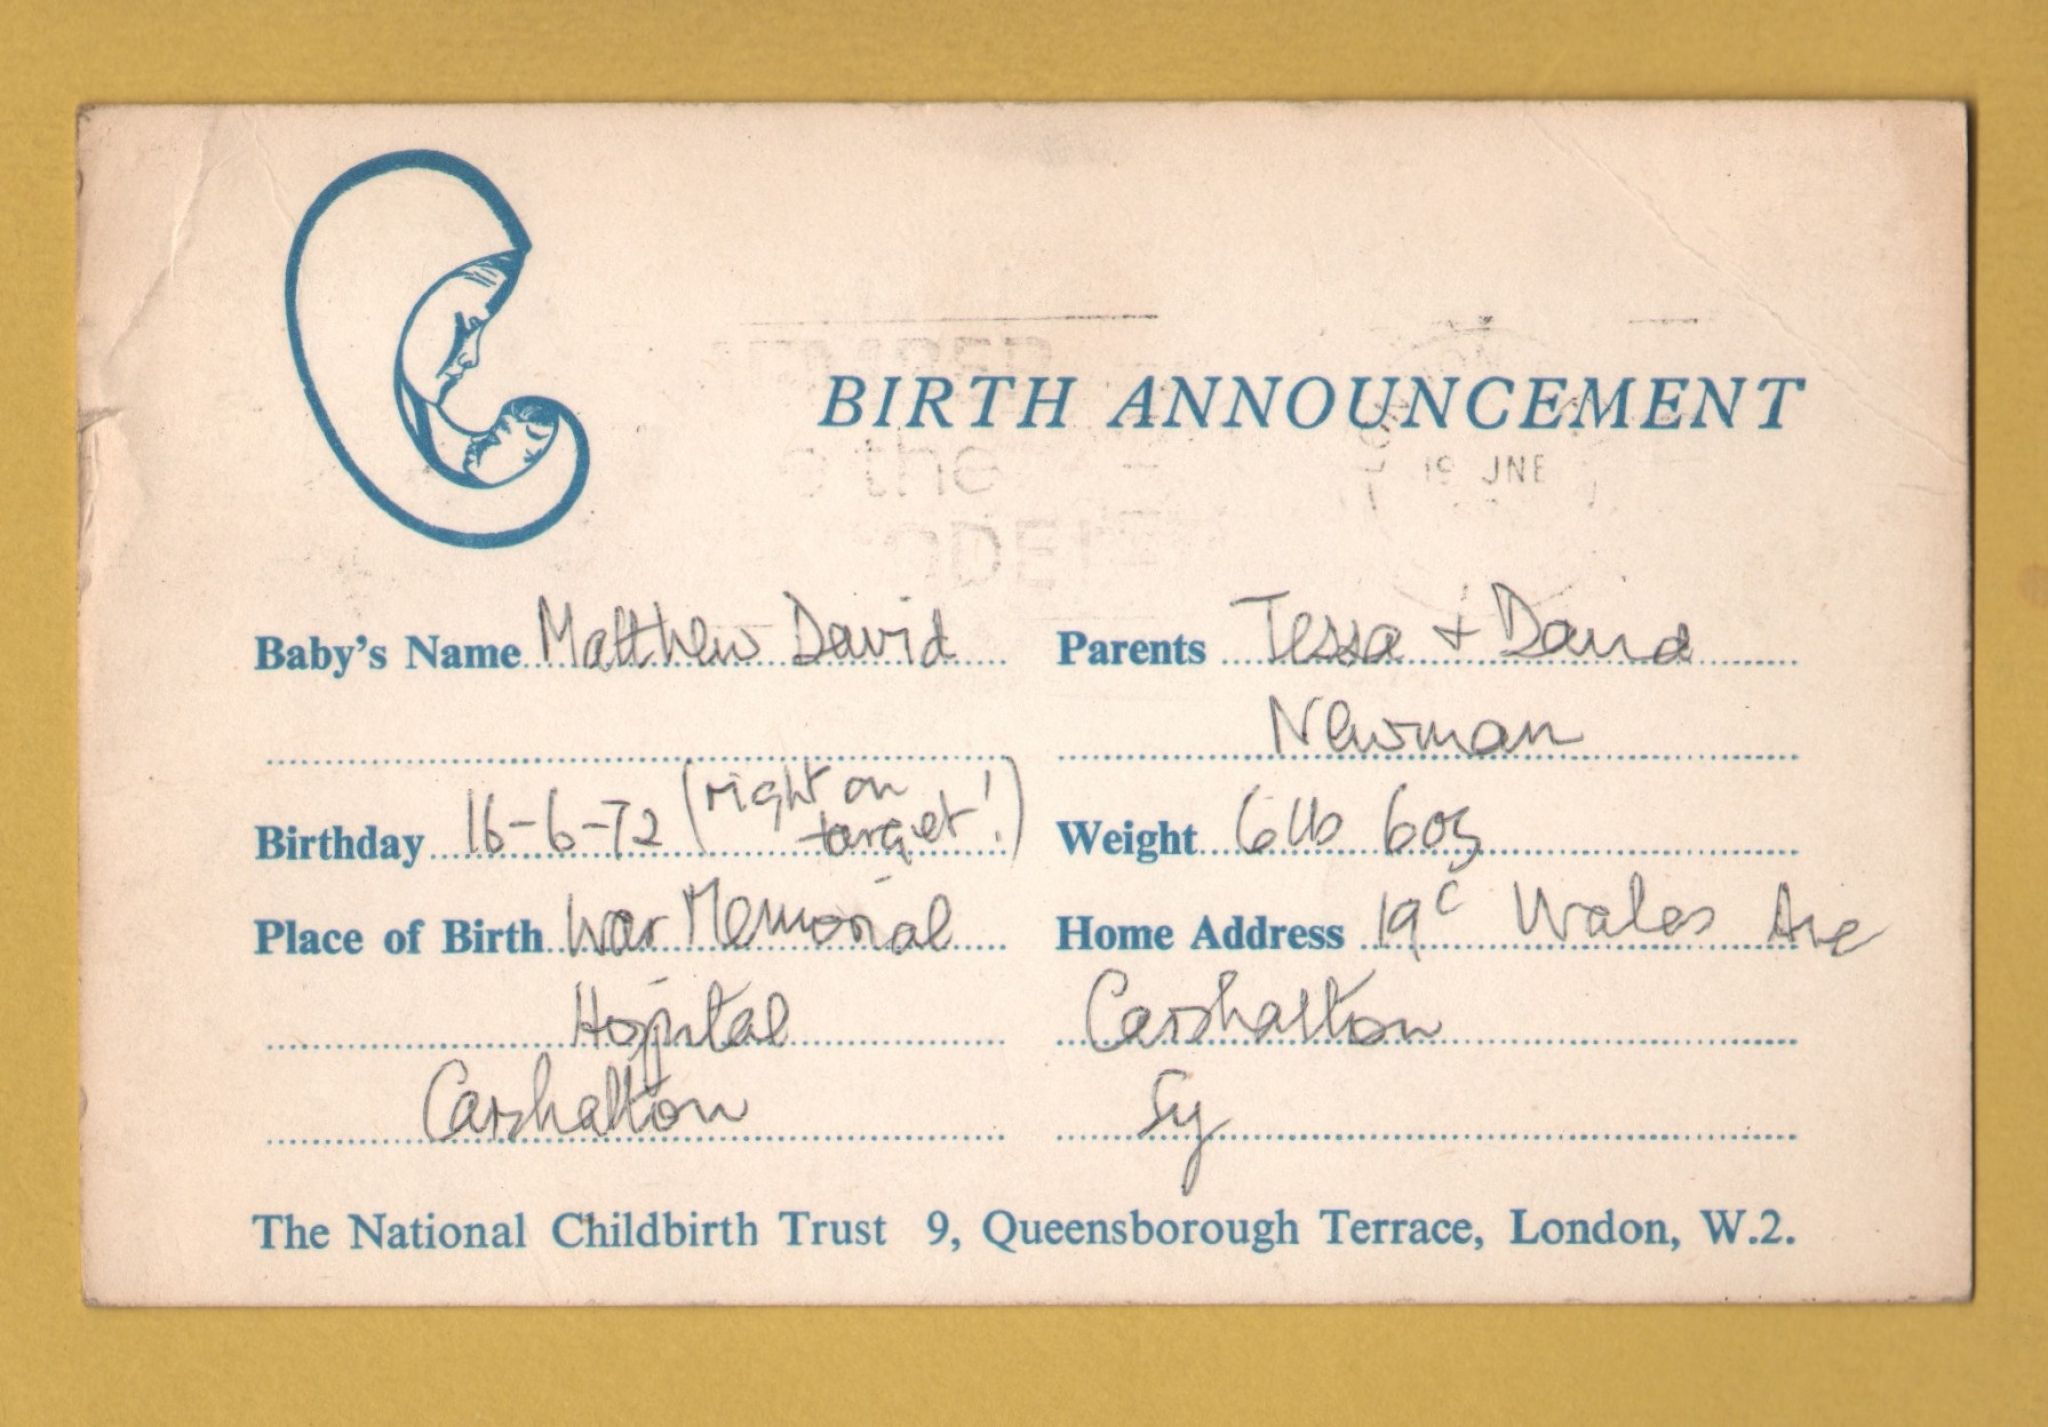 BIRTH ANNOUNCEMENT
o the
19 JNE
Baby's Name Matthew David
Parents Tessa + David
Newman
Birthday 16-6-72 (right on
target!)
Weight 6lb 6oz
Place of Birth War Memorial
Hospital
Carshalton
Home Address 19c Wales Ave
Carshalton
Sy
The National Childbirth Trust 9, Queensborough Terrace, London, W.2.